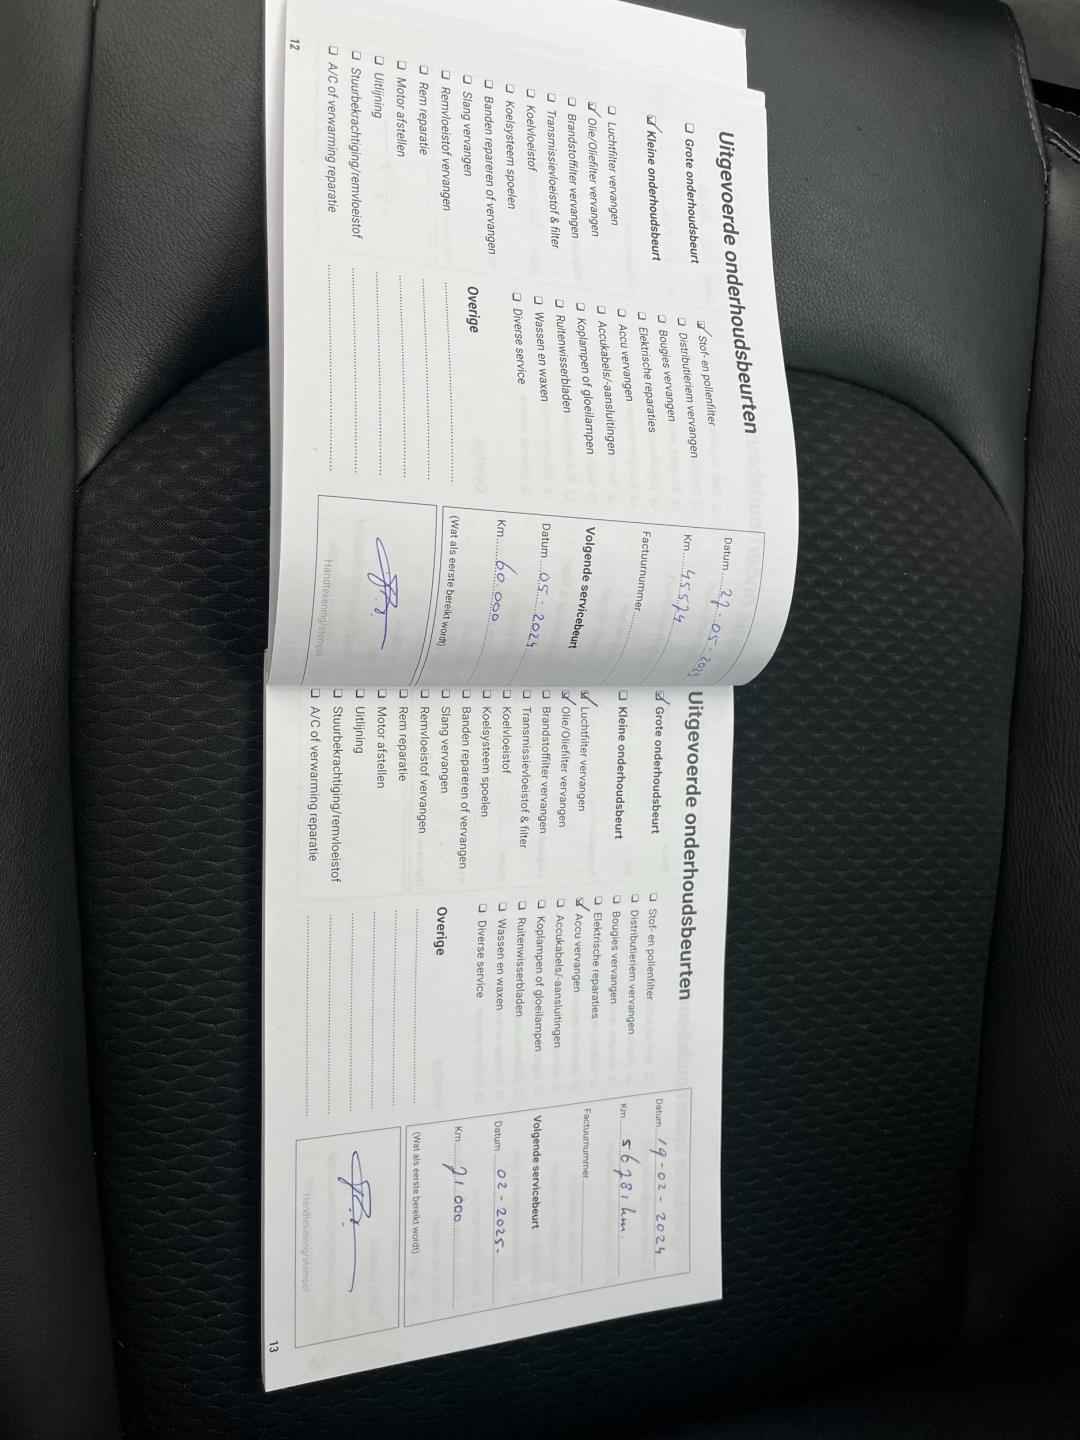 Uitgevoerde onderhoudsbeurten
❏ Grote onderhoudsbeurt
☑ Kleine onderhoudsbeurt
❏ Luchtfilter vervangen
☑ Olie/Oliefilter vervangen
❏ Brandstoffilter vervangen
❏ Transmissievloeistof & filter
❏ Koelvloeistof
❏ Koelsysteem spoelen
❏ Banden repareren of vervangen
❏ Slang vervangen
❏ Remvloeistof vervangen
❏ Rem reparatie
❏ Motor afstellen
❏ Uitlijning
❏ Stuurbekrachtiging/remvloeistof
❏ A/C of verwarming reparatie
☑ Stof- en pollenfilter
❏ Distributieriem vervangen
❏ Bougies vervangen
❏ Elektrische reparaties
❏ Accu vervangen
❏ Accukabels/-aansluitingen
❏ Koplampen of gloeilampen
❏ Ruitenwisserbladen
❏ Wassen en waxen
❏ Diverse service
Overige
Datum 27-05-
Km 45574
Factuurnummer
Volgende servicebeurt
Datum 05-2024
Km 60.000
(Wat als eerste bereikt wordt)
Handtekening/stempel
12
Uitgevoerde onderhoudsbeurten
☑ Grote onderhoudsbeurt
❏ Kleine onderhoudsbeurt
☑ Luchtfilter vervangen
☑ Olie/Oliefilter vervangen
❏ Brandstoffilter vervangen
❏ Transmissievloeistof & filter
❏ Koelvloeistof
❏ Koelsysteem spoelen
❏ Banden repareren of vervangen
❏ Slang vervangen
❏ Remvloeistof vervangen
❏ Rem reparatie
❏ Motor afstellen
❏ Uitlijning
❏ Stuurbekrachtiging/remvloeistof
❏ A/C of verwarming reparatie
❏ Stof- en pollenfilter
❏ Distributieriem vervangen
❏ Bougies vervangen
❏ Elektrische reparaties
☑ Accu vervangen
❏ Accukabels/-aansluitingen
❏ Koplampen of gloeilampen
❏ Ruitenwisserbladen
❏ Wassen en waxen
❏ Diverse service
Overige
Datum 19-02-2024
Km 56781 km.
Factuurnummer
Volgende servicebeurt
Datum 02-2025.
Km 71.000
(Wat als eerste bereikt wordt)
Handtekening/stempel
13